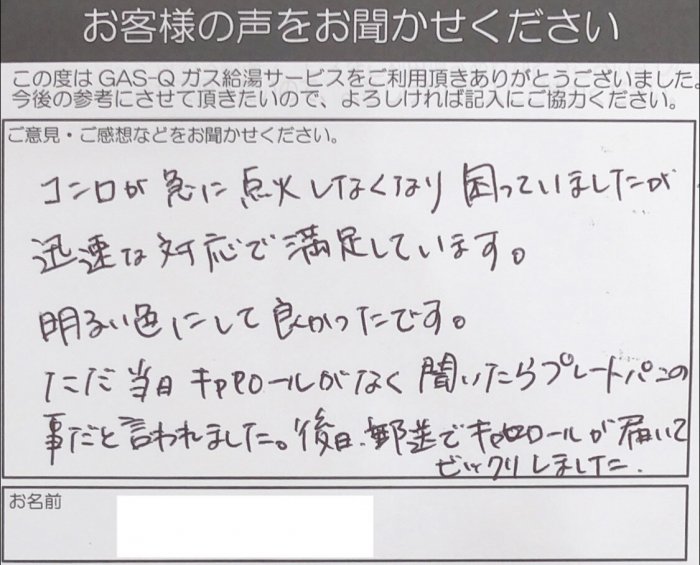 お客様の声をお聞かせください
この度はGAS-Qガス給湯サービスをご利用頂きありがとうございました。
今後の参考にさせて頂きたいので、よろしければ記入にご協力ください。
ご意見・ご感想などをお聞かせください。
コンロが急に点火しなくなり困っていましたが
迅速な対応で満足しています。
明るい色にして良かったです。
ただ当日キャセロールがなく聞いたらプレートパンの
事だと言われました。後日、郵送でキャセロールが届いて
ビックリしました。
お名前